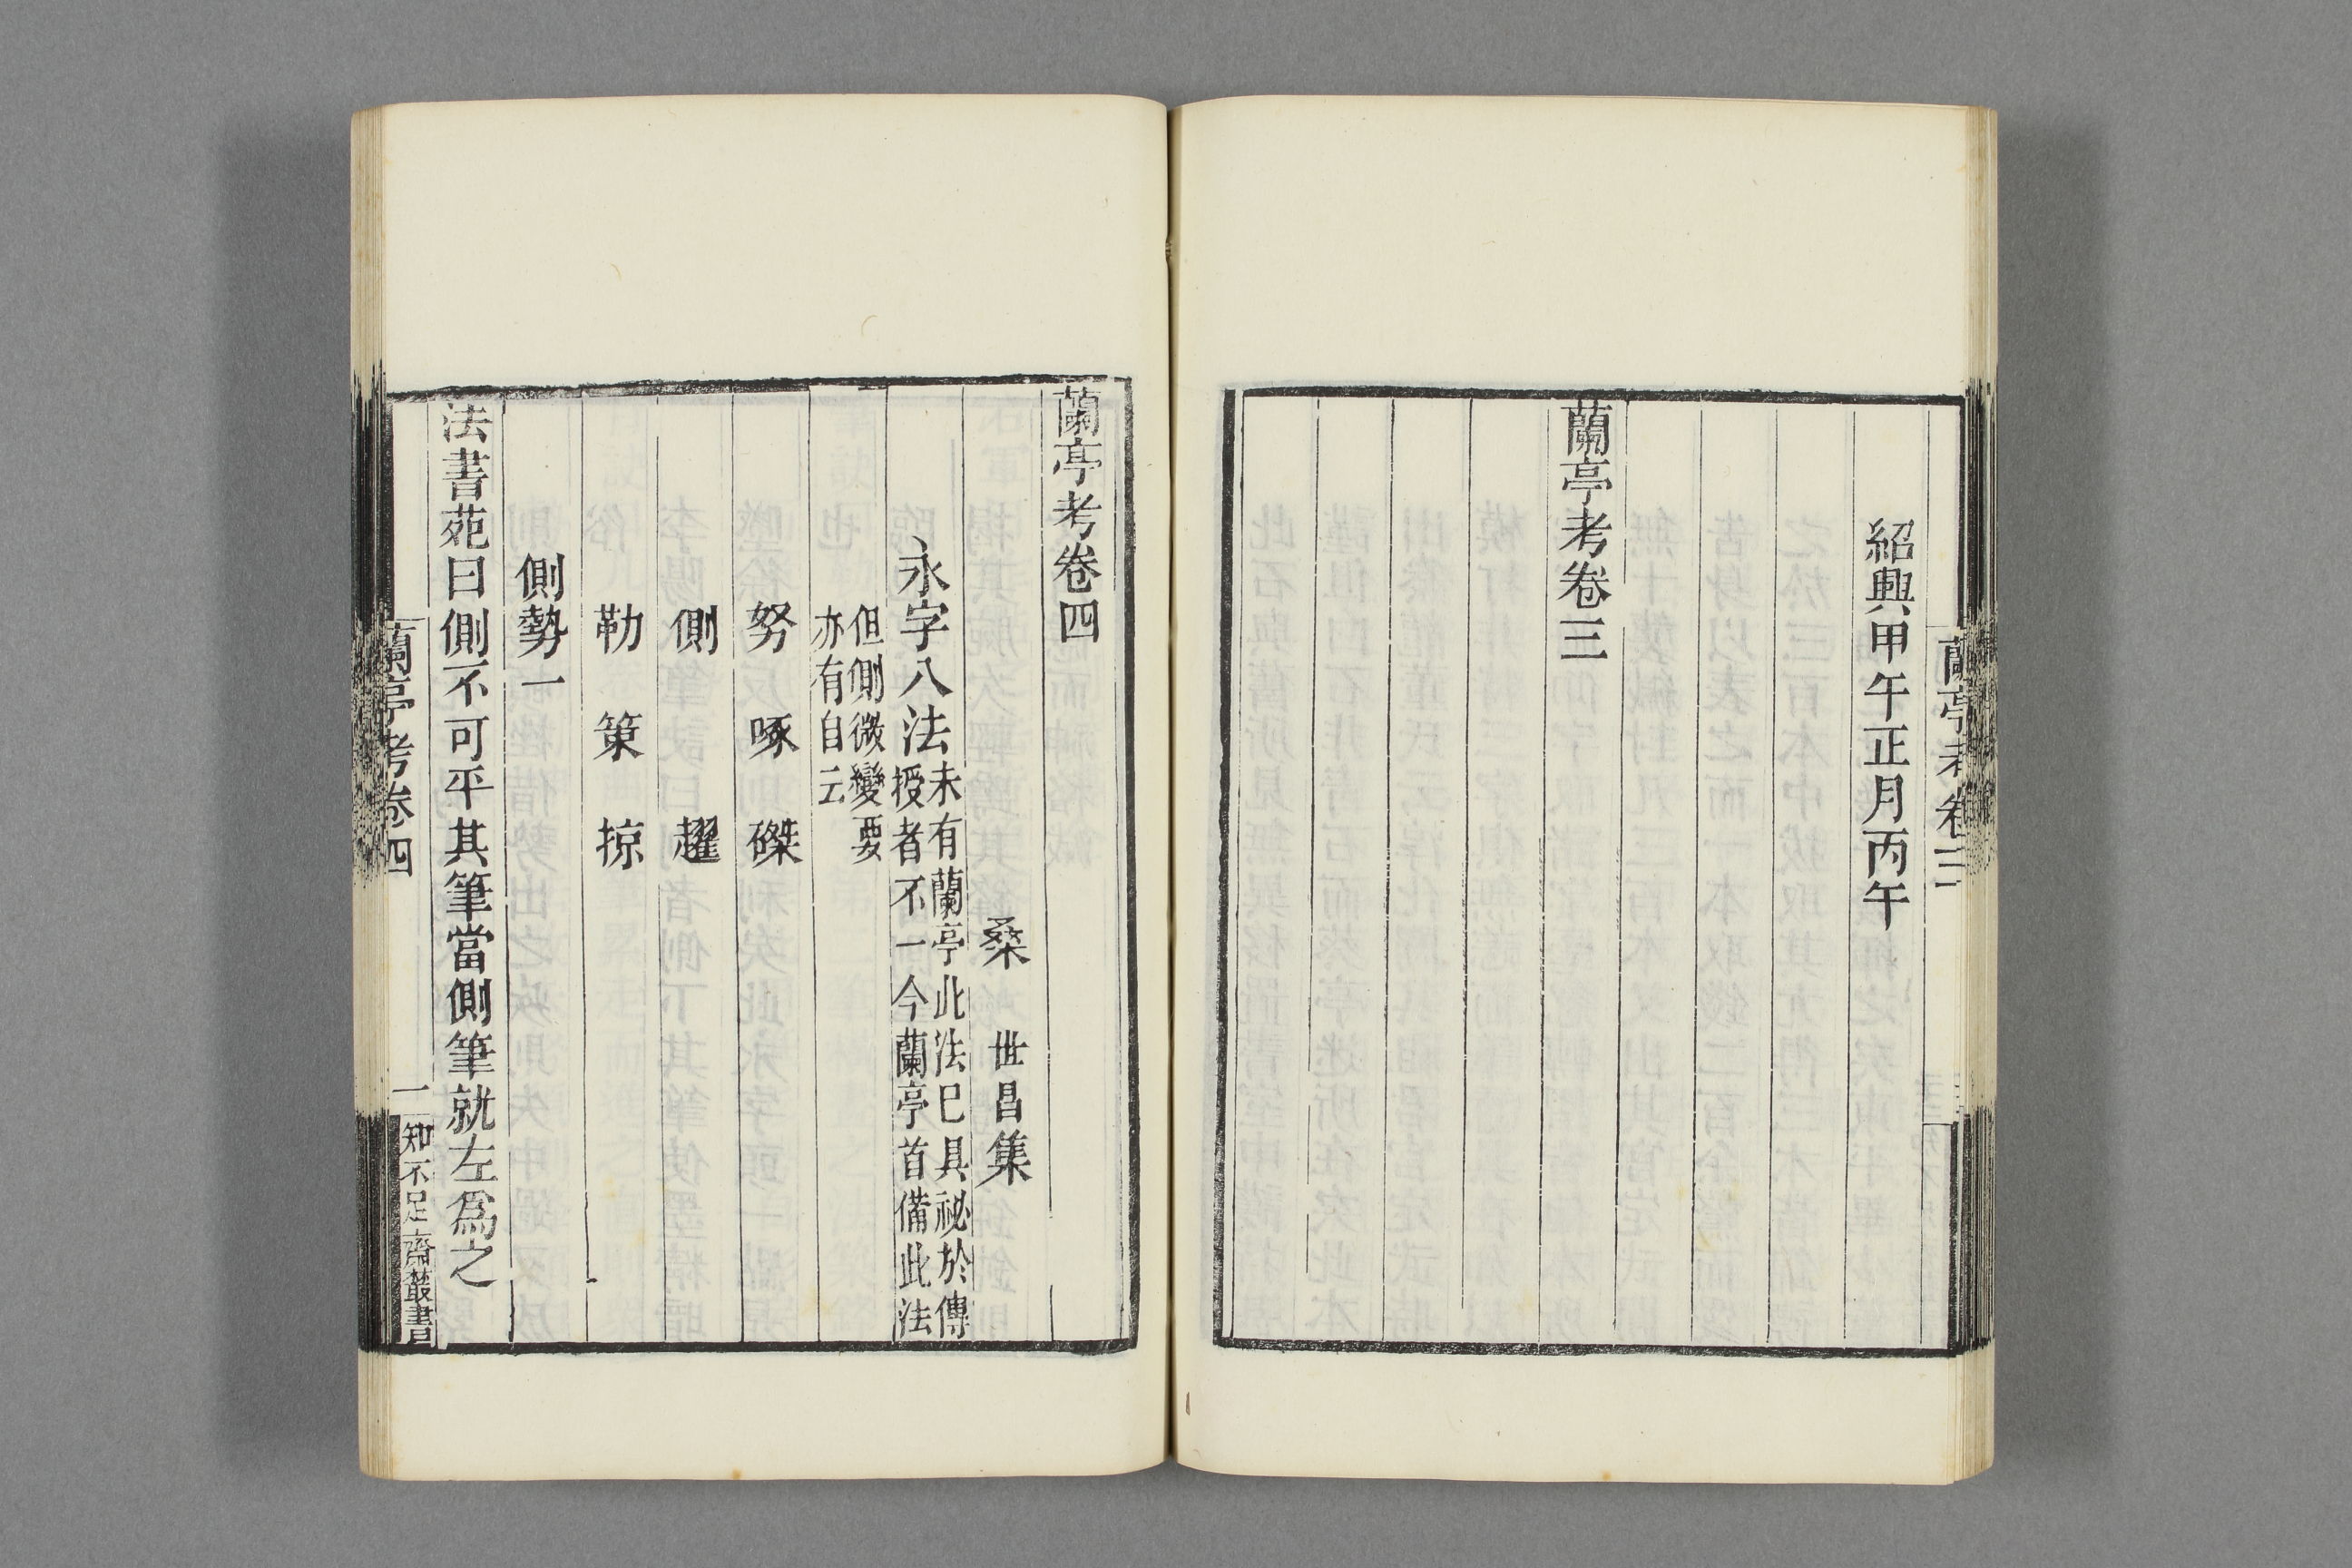 蘭亭考卷三
紹興甲午正月丙午
蘭亭考卷三
蘭亭考卷四
桑世昌集
永字八法
未有蘭亭此法已具祕於傳
授者不一今蘭亭首備此法
但側微變要
亦有自云
努啄磔
側趯
勒策掠
側勢一
法書苑曰側不可平其筆當側筆就左爲之
蘭亭考卷四
一
知不足齋叢書